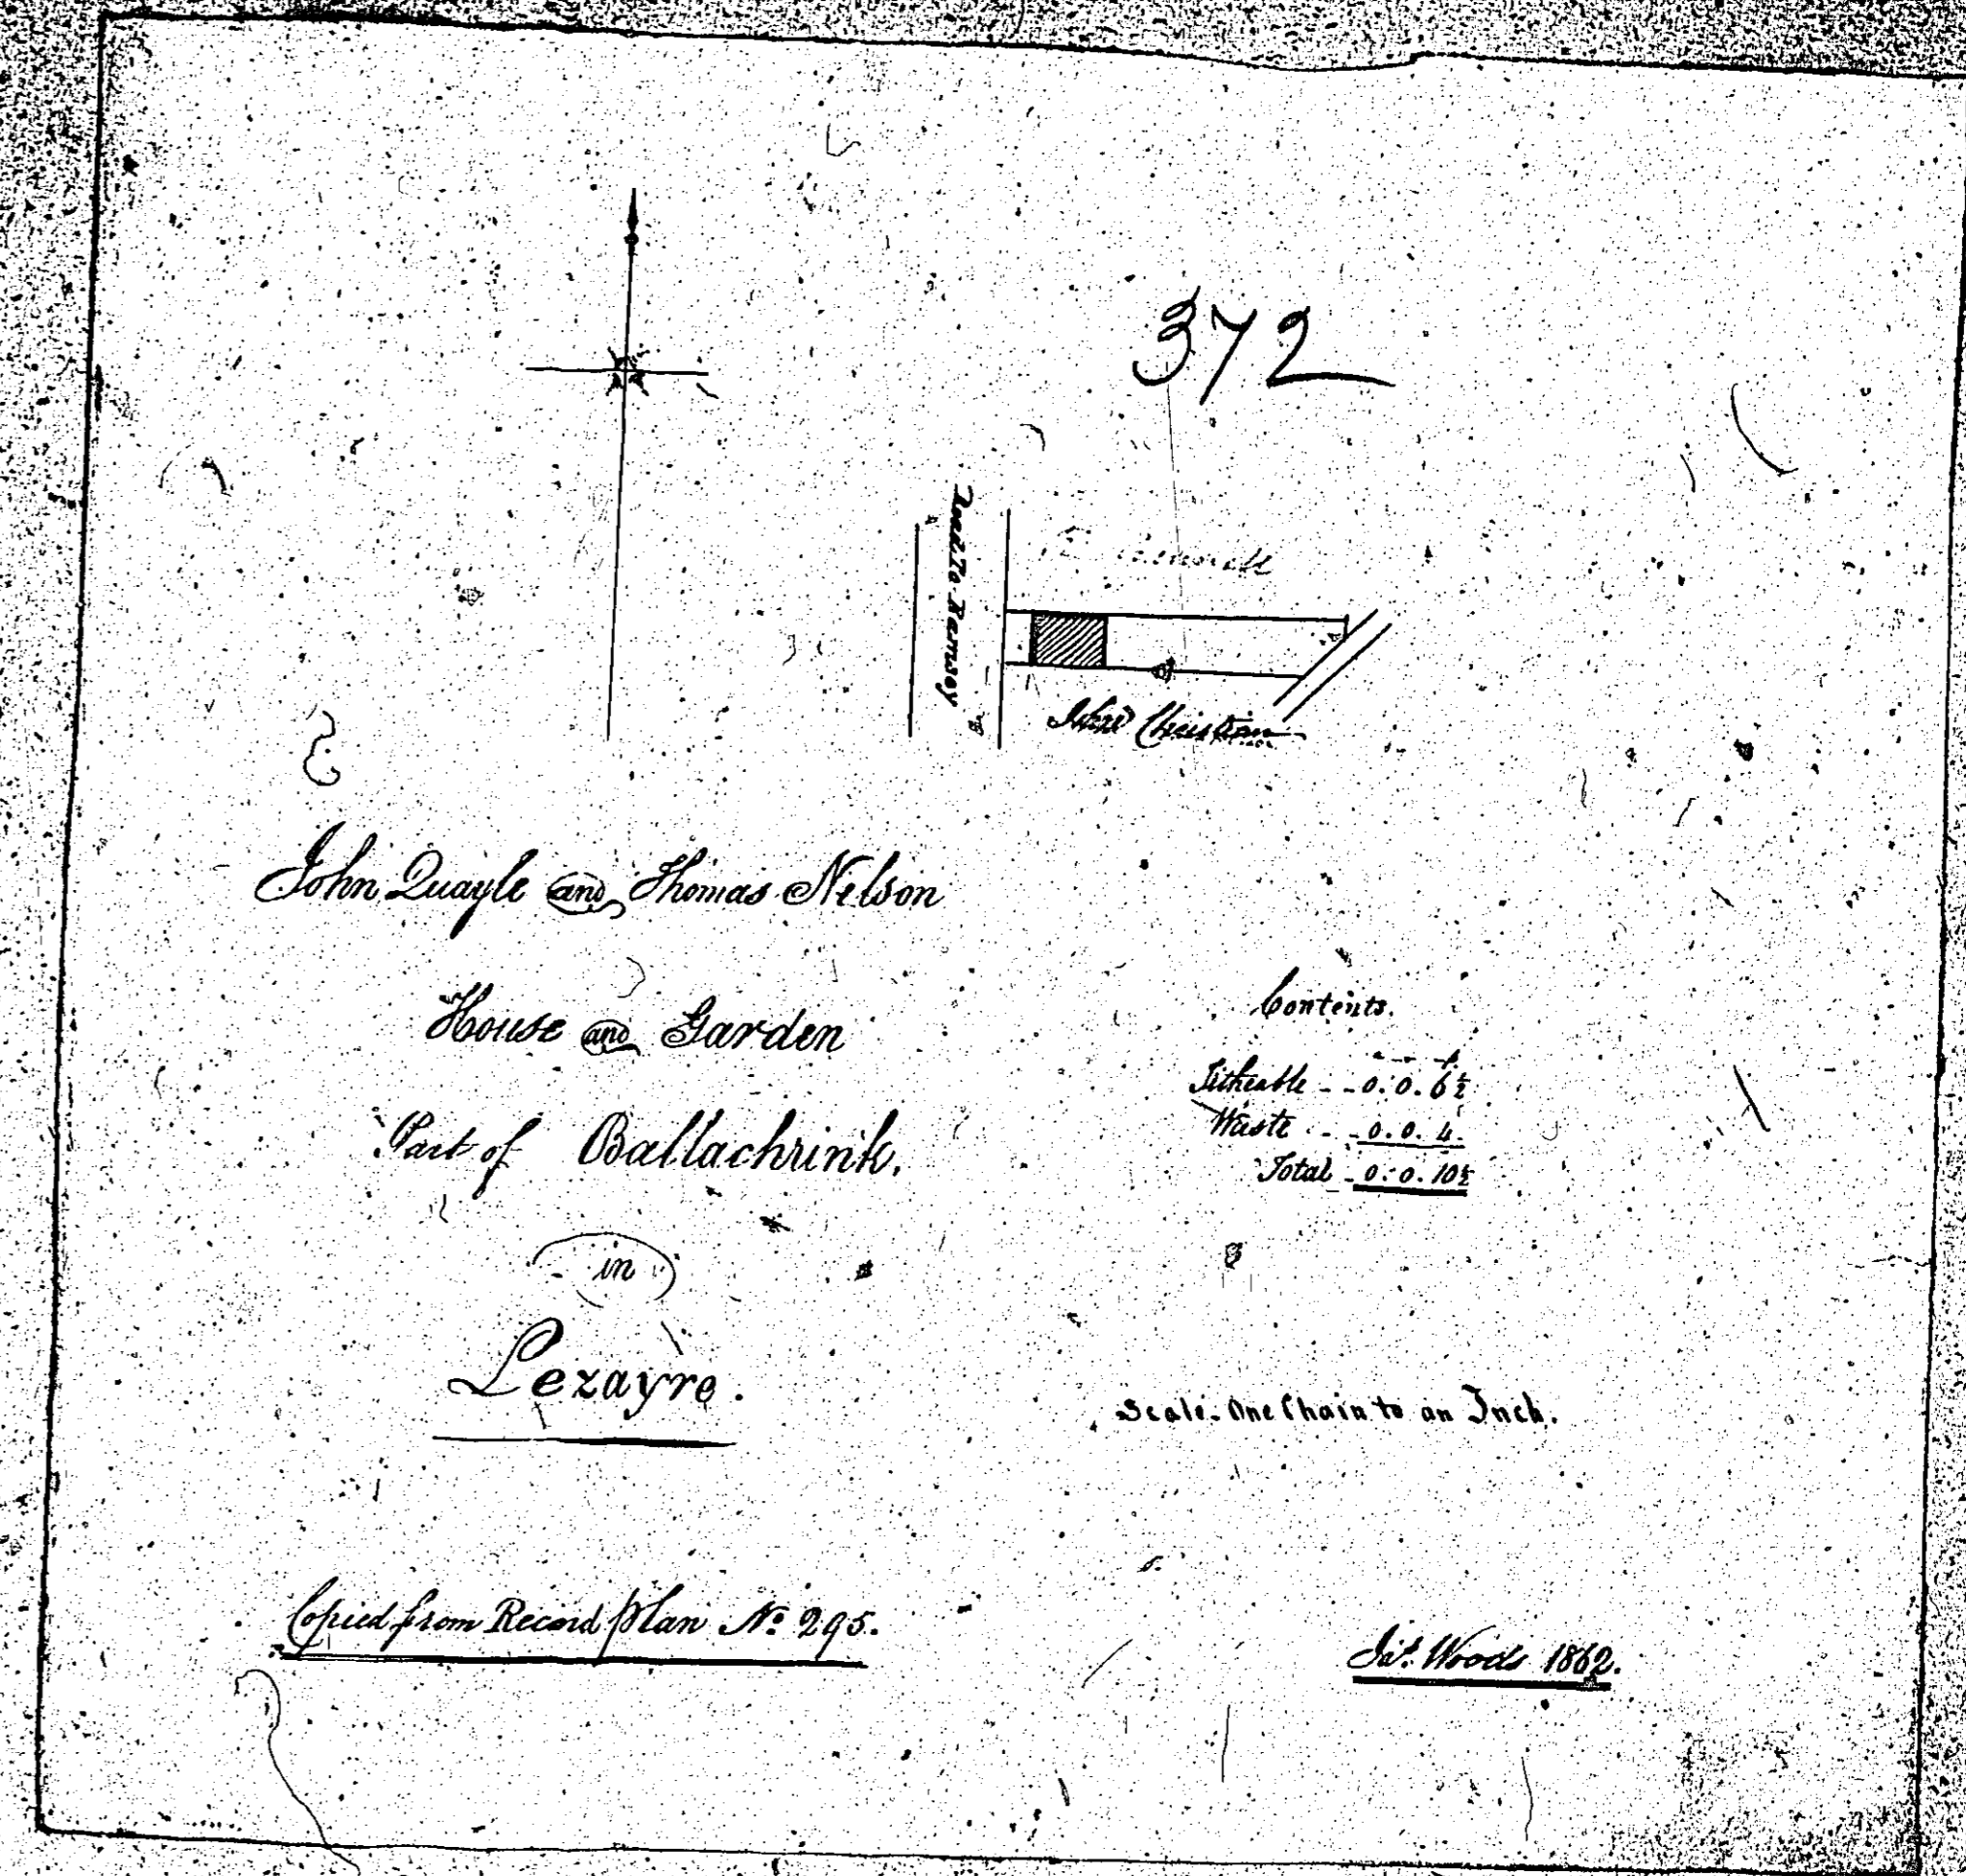 372
Road To Ramsey
John Christian
John Quayle and Thomas Nelson
House and Garden
Part of Ballachrink.
in
Lezayre.
Contents.
a r p
Titheable - - 0. 0. 6½
Waste - - 0. 0. 4.
Total - 0. 0. 10½
Scale. One Chain to an Inch.
Copied from Record plan No. 295.
Jas. Woods 1862.